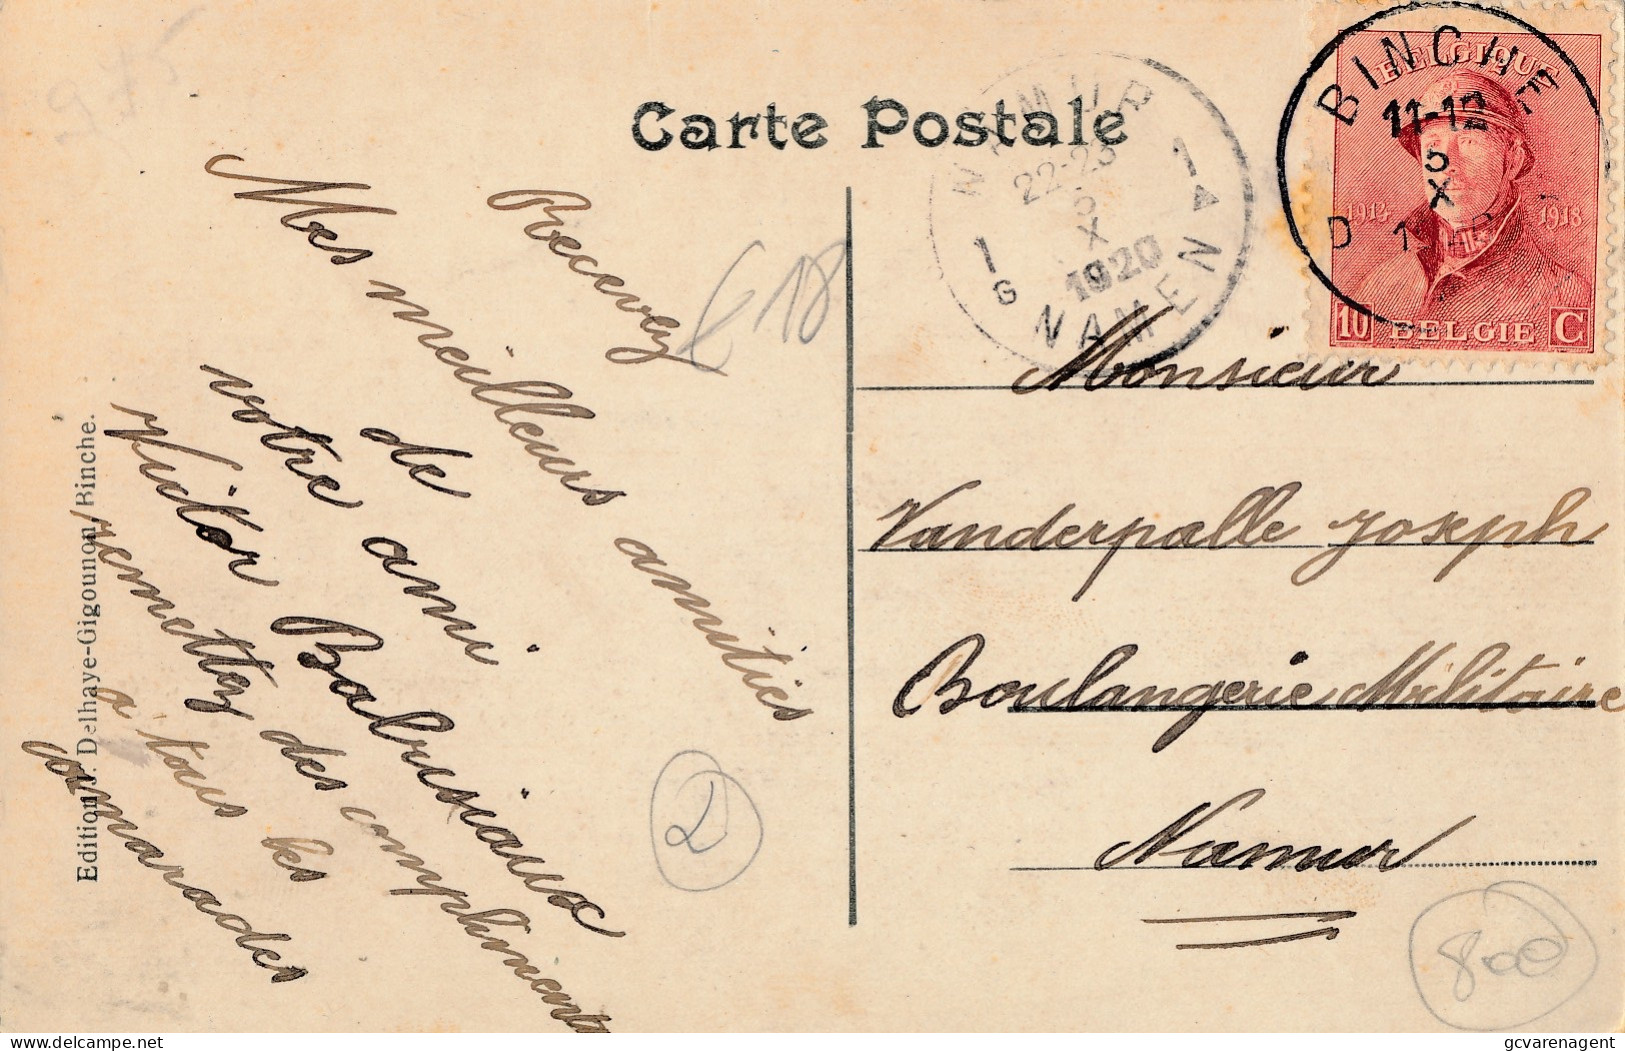 Carte Postale
Recevez
Mes meilleurs amitiés
de
votre ami
Victor Balrisiaux
remettez des compliments
a tous les
camarades
Edition J. Delhaye-Gigounon, Binche.
€ 18
NAMUR 1
22-23
5
X
1920
1 G NAMEN 1
BINCHE
11-12
5
X
D 1
BELGIQUE
1914 1918
10 BELGIE C
Monsieur
Vanderpalle Joseph
Boulangerie Militaire
Namur
800
delcampe.net
gcvarenagent